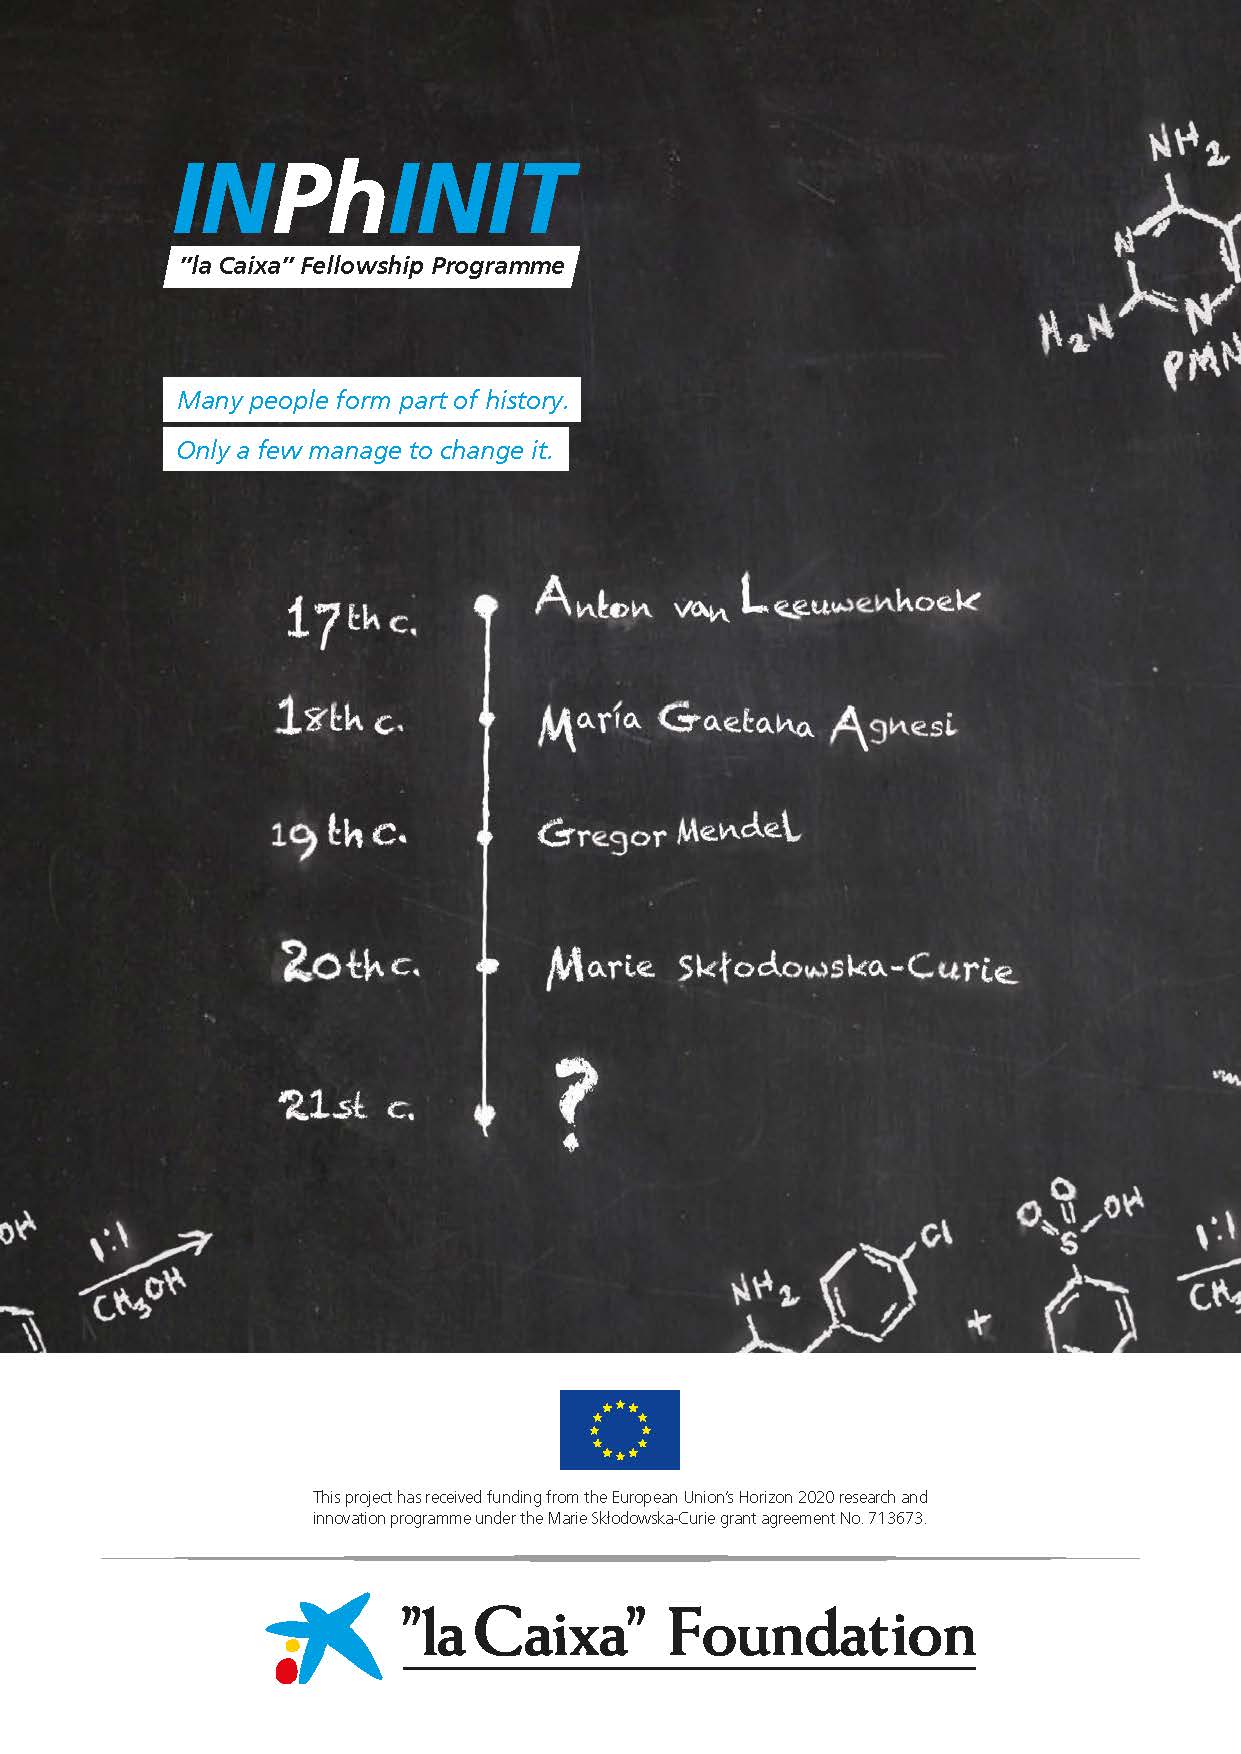 INPhINIT
”la Caixa” Fellowship Programme
Many people form part of history.
Only a few manage to change it.
NH2
N
H2N
N
PMN
17th c.
Anton van Leeuwenhoek
18th c.
María Gaetana Agnesi
19th c.
Gregor Mendel
20th c.
Marie Skłodowska-Curie
21st c.
?
OH
1:1
CH3OH
NH2
Cl
+
O
O
S
OH
1:1
CH3
This project has received funding from the European Union’s Horizon 2020 research and
innovation programme under the Marie Skłodowska-Curie grant agreement No. 713673.
”la Caixa” Foundation